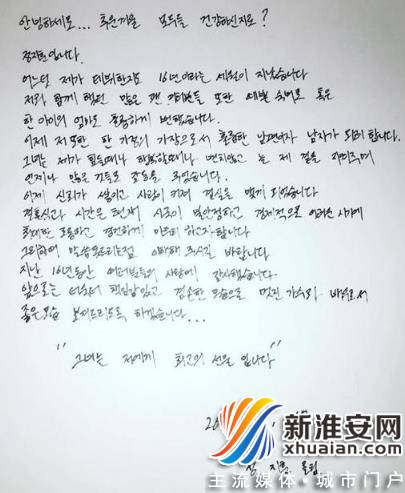 안녕하세요... 모두들 건강하신지요?
김지훈입니다.
어느덧 제가 데뷔한지도 16년이라는 세월이 지났습니다
저와 함께 했던 많은 팬 여러분들 또한 혹은
한 아이의 엄마로 훌륭하게 변했습니다.
이제 저 또한 한 가정의 가장으로서 훌륭한 남편이자 남자가 되려 합니다.
그녀는 제가 힘들때나 변치않고 늘 제 곁을
언제나 많은 것들로 주었습니다.
이제 신뢰가 쌓이고 사랑이 커져 결실을 맺게 되었습니다
시간은 현재 경제적으로 어려운 시기에
조용하고 경건하게 하고자합니다
이해해 주시길 바랍니다
지난 16년동안 여러분들의 사랑에 감사했습니다
앞으로는 더욱더 책임감있고 겸손한 모습으로 멋진 가수와
좋은모습 보여드리도록 하겠습니다...
"그녀는 저에게 최고의 선물 입니다"
20
김지훈 올림
新淮安网
xhuaian.com
主流媒体·城市门户